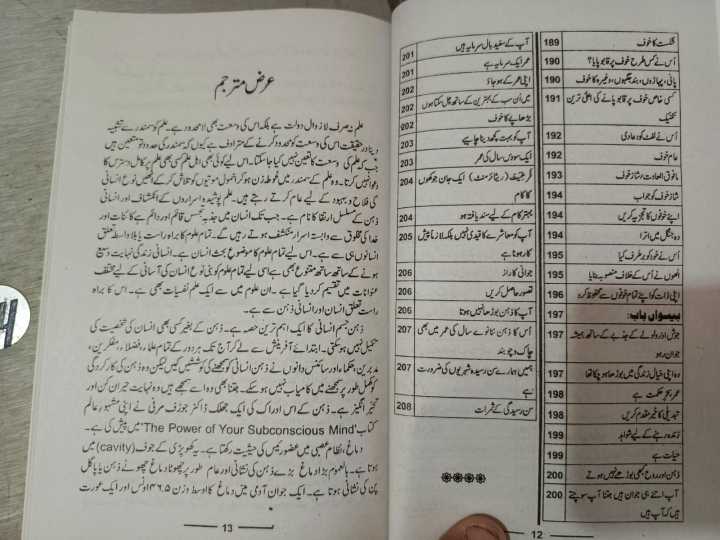 شکست کا خوف 189
اُس نے کس طرح خوف پر قابو پایا؟ 190
پانی، پہاڑوں، بند جگہوں، وغیرہ کا خوف 190
کسی خاص خوف پر قابو پانے کی اعلیٰ ترین 191
تکنیک
اُس نے لفٹ کو دعا دی 192
عام خوف 192
مافوق العادت؍شاذ خوف 193
شاذ خوف کو جواب 194
اپنے خوفوں کا تجزیہ کریں 194
وہ جنگل میں اترا 194
اُس نے خود کو برطرف کیا 195
اُنھوں نے اُس کے خلاف منصوبہ بنایا 195
اپنی ذات کو اپنے تمام خوفوں سے محفوظ کرو 196
بیسواں باب: 197
جوش اور ولولے کے جذبے کے ساتھ ہمیشہ 197
جوان رہو
وہ اپنی خیالی زندگی میں بوڑھا ہو چکا تھا 197
عمر بخیر حکمت ہے 198
تبدیلی کا خیر مقدم کریں 198
زندہ رہنے کے لیے شواہد 199
حیات ہے 199
ذہن اور روح کبھی بوڑھے نہیں ہوتے 200
آپ اتنے ہی جوان ہیں جتنا آپ سوچتے 200
ہیں کہ آپ ہیں
آپ کے سفید بال سرمایہ ہیں 201
عمر ایک سرمایہ ہے 201
اپنی عمر کے ہو جاؤ 202
میں اُن سب کے بہترین کے ساتھ چل سکتا ہوں 202
بڑھاپے کا خوف 202
آپ کو بہت کچھ دینا چاہیے 203
ایک سو دس سال کی عمر 203
گریجیٹ (ریٹائرمنٹ) ایک جان جوکھوں 204
کا کام
بہتر کام کے لیے سند یافتہ ہو 204
آپ کو معاشرے کا قیدی نہیں بلکہ لازماً پیش 205
کار ہونا ہے
جوانی کا راز 206
تصور حاصل کریں 206
آپ کا ذہن بوڑھا نہیں ہوتا 206
اُس کا ذہن ننانوے سال کی عمر میں بھی 207
چاک و چوبند
ہمیں ہمارے سن رسیدہ شہریوں کی ضرورت 207
ہے
سن رسیدگی کے ثمرات 208
12
عرض مترجم
علم نہ صرف لازوال دولت ہے بلکہ اس کی وسعت بھی لامحدود ہے۔ علم کو سمندر سے تشبیہ
دینا درحقیقت اس کی وسعت کو محدود کرنے کے مترادف ہے کیوں کہ سمندر کی حدود تو متعین ہیں
جب کہ علم کی وسعت کا تعین نہیں کیا جا سکتا۔ اس لیے کوئی بھی اہل علم کسی بھی علم پر کامل دسترس کا
دعوا نہیں کرتا۔ وہ علم کے سمندر میں غوطہ زن ہو کر انمول موتیوں کو تلاش کر کے انھیں نوع انسانی
کی فلاح و بہبود کے لیے عام کرتے رہتے ہیں۔ علم پوشیدہ اسراروں کے انکشاف اور انسانی
ذہن کے مسلسل ارتقا کا نام ہے۔ جب تک انسان میں جذبہ تجسس قائم اور دائم ہے کائنات اور
خدا کی مخلوق سے وابستہ اسرار منکشف ہوتے رہیں گے۔ تمام علوم کا براہ راست یا بلاواسطہ تعلق
انسانوں ہی سے ہے۔ اس لیے تمام علوم کا موضوع بحث انسان ہے۔ انسانی زندگی نہایت وسیع
ہونے کے ساتھ ساتھ متنوع بھی ہے اسی لیے تمام علوم کو بنی نوع انسان کی آسانی کے لیے مختلف
عنوانات میں تقسیم کر دیا گیا ہے۔ ان علوم میں سے ایک علم نفسیات بھی ہے۔ اس کا براہ
راست تعلق انسان اور انسانی ذہن سے ہے۔
ذہن جسم انسانی کا ایک اہم ترین حصہ ہے۔ ذہن کے بغیر کسی بھی انسان کی شخصیت کی
تکمیل نہیں ہو سکتی۔ ابتدائے آفرینش سے لے کر آج تک ہر دور کے تمام علما، فضلا، مفکرین،
مدبرین، حکما، اور سائنس دانوں نے ذہن انسانی کو سمجھنے کی کوششیں کیں لیکن وہ ذہن کی کارکردگی
کو مکمل طور پر سمجھنے میں کامیاب نہیں ہو سکے۔ جتنا بھی وہ اسے سمجھے ہیں وہ نہایت حیران کن اور
تحیر انگیز ہے۔ ذہن کے اس ادراک کی ایک جھلک ڈاکٹر جوزف مرفی نے اپنی مشہور عالم
کتاب 'The Power of Your Subconscious Mind' میں پیش کی ہے۔
دماغ، نظام عصبی میں عضو رئیس کی حیثیت رکھتا ہے۔ یہ کھوپڑی کے جوف (cavity) میں
ہوتا ہے۔ بالعموم بڑا دماغ بڑے ذہن کی نشانی اور عام طور پر چھوٹا دماغ چھوٹے ذہن یا پاگل
پن کی نشانی ہوتا ہے۔ ایک جوان آدمی میں دماغ کا اوسط وزن ۴۶.۵ اونس اور ایک عورت
13